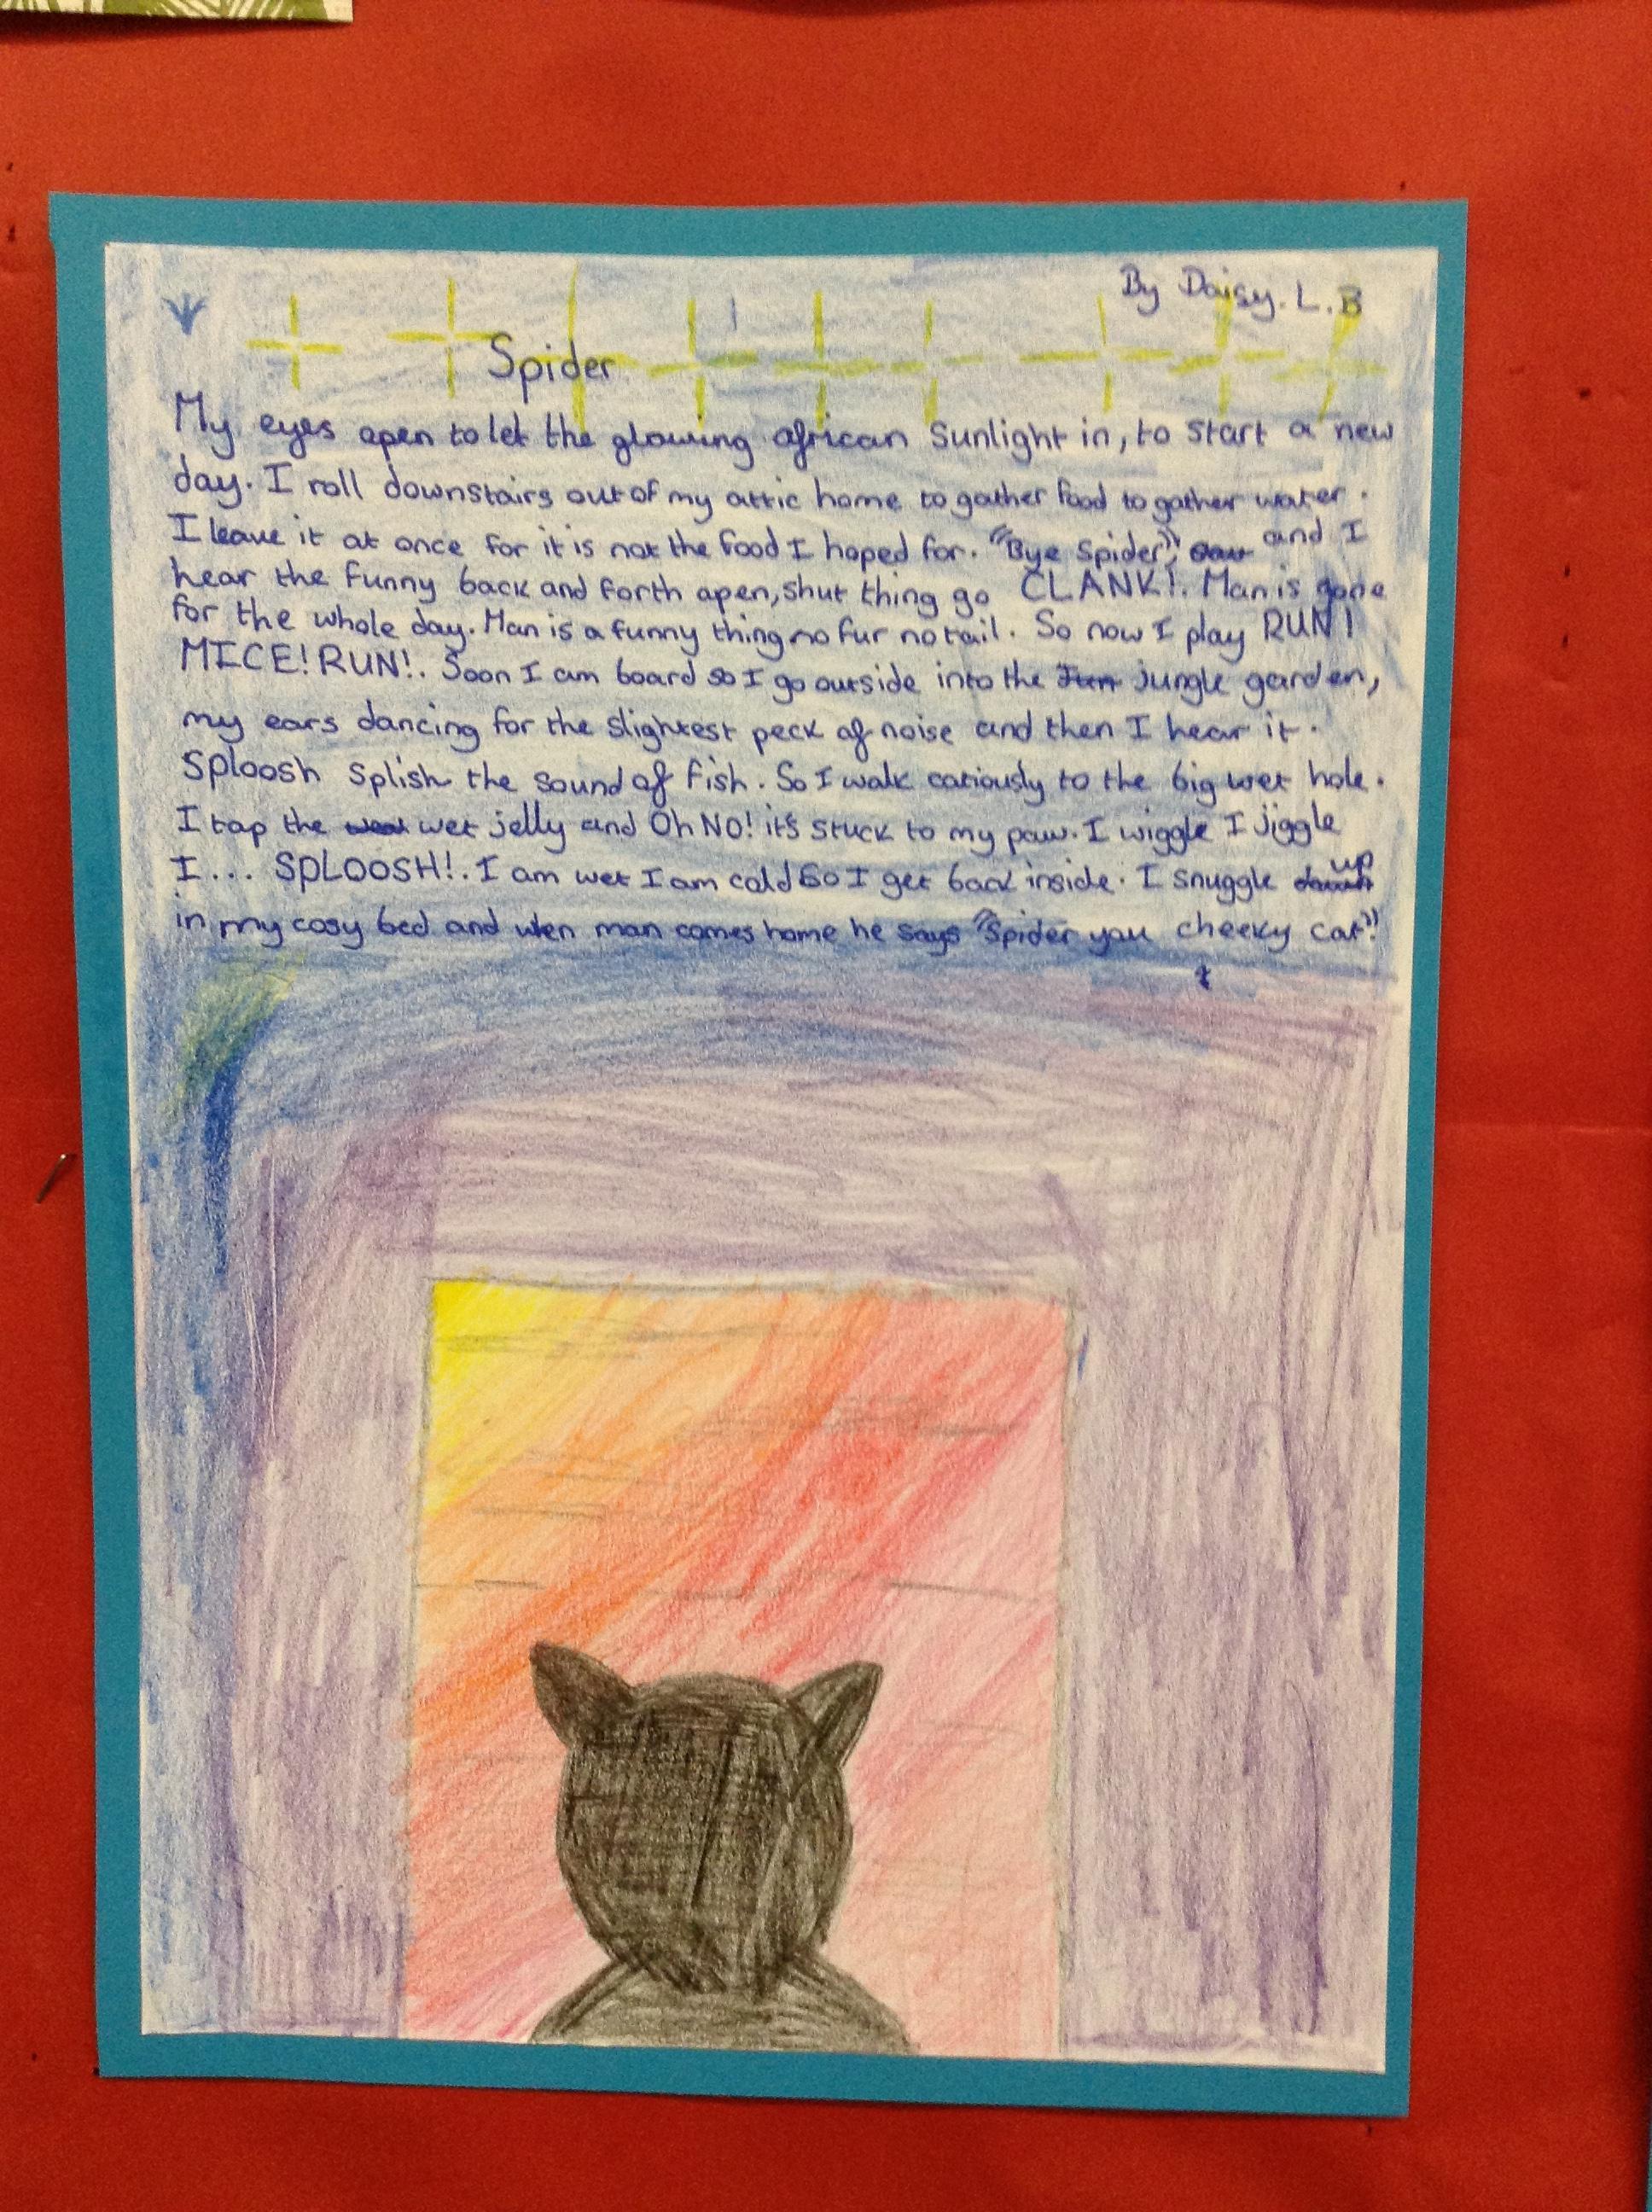 By Daisy. L.B
Spider
My eyes open to let the glowing african sunlight in, to start a new
day. I roll downstairs out of my attic home to gather food to gather water.
I leave it at once for it is not the food I hoped for. "Bye Spider", and I
hear the funny back and forth open, shut thing go CLANK!. Man is gone
for the whole day. Man is a funny thing no fur no tail. So now I play RUN!
MICE! RUN!. Soon I am board so I go outside into the jungle garden,
my ears dancing for the slightest peck of noise and then I hear it.
Sploosh Splish the sound of fish. So I walk catiously to the big wet hole.
I tap the wet jelly and Oh NO! it's stuck to my paw. I wiggle I jiggle
I... SPLOOSH!. I am wet I am cold so I get back inside. I snuggle up
in my cosy bed and when man comes home he says "Spider you cheeky cat"!